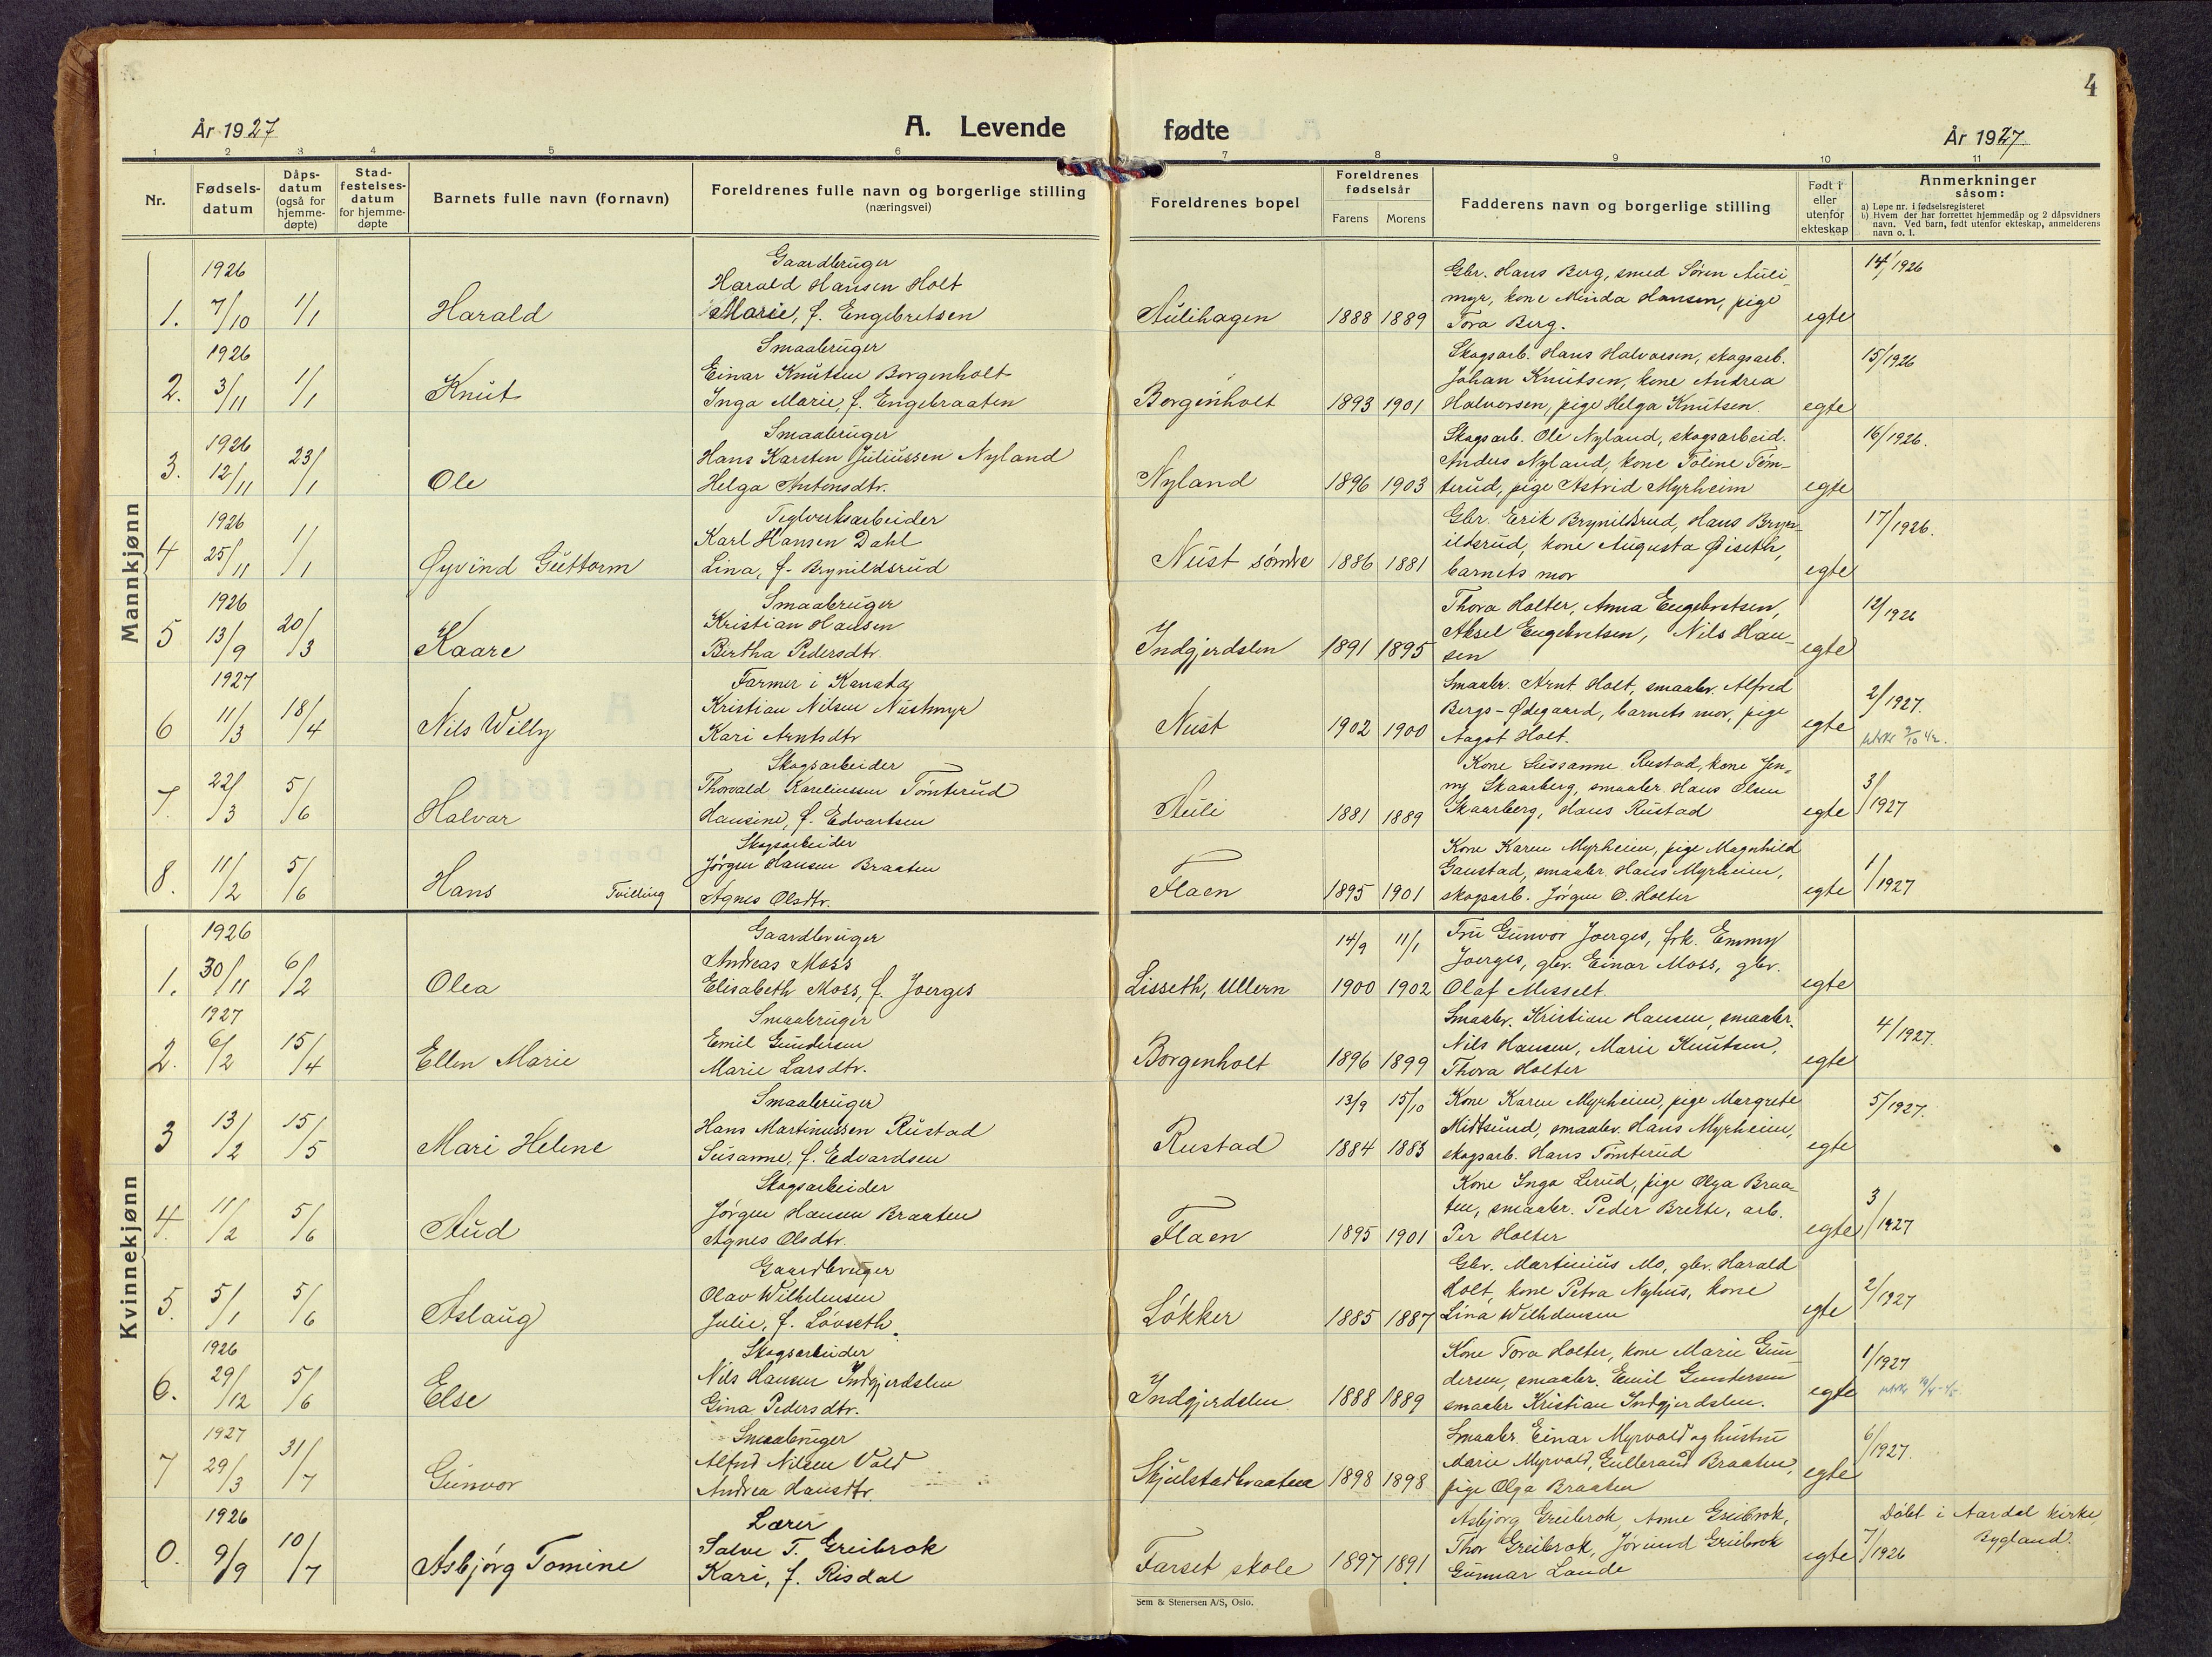 4
År 1927
A. Levende
fødte
År 1927.
1 2 3 4 5 6 7 8 9 10 11
Nr.
Fødsels-
datum
Dåps-
datum
(også for
hjemme-
døpte)
Stad-
festelses-
datum
for hjemme-
døpte
Barnets fulle navn (fornavn)
Foreldrenes fulle navn og borgerlige stilling
(næringsvei)
Foreldrenes bopel
Foreldrenes
fødselsår
Farens Morens
Fadderens navn og borgerlige stilling
Født i
eller
utenfor
ekteskap
Anmerkninger
såsom:
a) Løpe nr. i fødselsregisteret
b) Hvem der har forrettet hjemmedåp og 2 dåpsvidners
navn. Ved barn, født utenfor ekteskap, anmelderens
navn o. l.
Mannkjønn
1926 Gaardbruger Gbr. Hans Berg, smed Søren Auli- 14/1926
Harald Hansen Holt myr, kone Minda Hansen, pige
1. 7/10 1/1 Harald Marie, f. Engebretsen Aulihagen 1888 1889 Tora Berg. egte
1926 Smaabruger Skogsarb. Hans Halvorsen, skogsarb. 15/1926
Einar Knutsen Borgenholt Johan Knutsen, kone Andrea
2. 3/11 1/1 Knut Inga Marie, f. Engebraaten Borgenholt 1893 1901 Halvorsen, pige Helga Knutsen. egte
1926 Smaabruger Skogsarb. Ole Nyland, skogsarbeid. 16/1926.
Hans Karsten Juliussen Nyland Anders Nyland, kone Toline Tøm-
3. 12/11 23/1 Ole Helga Antonsdtr. Nyland 1896 1903 terud, pige Astrid Myrheim egte
1926 Teglverksarbeider Gbr. Erik Brynildsrud, Hans Bryn- 17/1926.
Karl Hansen Dahl ildsrud, kone Augusta Øiseth,
4 25/11 1/1 Øyvind Guttorm Lina, f. Brynildsrud Nust søndre 1886 1881 barnets mor egte
1926 Smaabruger Thora Holter, Anna Engebretsen, 12/1926
Kristian Hansen Aksel Engebretsen, Nils Han-
5 13/9 20/3 Kaare Birtha Pedersdtr. Indgjerdslen 1891 1895 sen egte
1927 Farmer i Kanada Smaabr. Arnt Holt, smaabr. Alfred 2/1927.
Kristian Nilsen Nustmyr Bergs-Ødegaard, barnets mor, pige
6 11/3 18/4 Nils Willy Kari Arntsdtr Nust 1902 1900 Aagot Holt. egte
Skogsarbeider Kone Sussanne Rustad, kone Jen- 3/1927
Thorvald Kareliussen Tømterud ny Skaarberg, smaabr. Hans Olsen
7. 22/3 5/6 Halvar Hansine, f. Edvartsen Auli 1881 1889 Skaarberg, Hans Rustad egte
Skogsarbeider Kone Karen Myrheim, pige Magnhild 1/1927
Jørgen Hansen Braaten Gaustad, smaabr. Hans Myrheim,
8. 11/2 5/6 Hans Tvilling Agnes Olsdtr. Flaen 1895 1901 skogsarb. Jørgen O. Holter egte
Kvinnekjønn
1926 Gaardbruger 14/9 11/1 Fru Gunvor Joerges, frk. Emmy
Andreas Moss Joerges, gbr. Einar Moss, gbr.
1. 30/11 6/2 Olea Elisabeth Moss, f. Joerges Lisseth, Ullern 1900 1902 Olaf Misselt. egte
1927 Smaabruger Smaabr. Kristian Hansen, smaabr. 4/1927.
Emil Gundersen Nils Hansen, Marie Knutsen,
2. 6/2 15/4 Ellen Marie Marie Larsdtr. Borgenholt 1896 1899 Thora Holter egte
Smaabruger 13/9 15/10 Kone Karen Myrheim, pige Margrete 5/1927.
Hans Martinussen Rustad Midtsund, smaabr. Hans Myrheim,
3 13/2 15/5 Mari Helene Susanne, f. Edvardsen Rustad 1884 1883 skogsarb. Hans Tømterud egte
Skogsarbeider Kone Inga Lerud, pige Olga Braa- 3/1927
Jørgen Hansen Braaten ten, smaabr. Peder Brekke, arb.
4. 11/2 5/6 Aud Agnes Olsdtr. Flaen 1895 1901 Per Holter egte
Gaardbruger Gbr. Martinius Mo, gbr. Harald 2/1927
Olav Wilhelmsen Holt, kone Petra Nyhus, kone
5. 5/1 5/6 Aslaug Julie, f. Løvseth. Løkker 1885 1887 Lina Wilhelmsen egte
1926 Skogsarbeider Kone Tora Holter, kone Marie Gun- 1/1927
Nils Hansen Indgjerdslen dersen, smaabr. Emil Gundersen
6. 29/12 5/6 Else Gina Pedersdtr. Indgjerdslen 1888 1889 smaabr Kristian Indgjerdslen. egte
1927 Smaabruger Smaabr. Einar Myrvold og hustru 6/1927.
Alfred Nilsen Vold Marie Myrvold, Gulleraud Braaten,
7 29/3 31/7 Gunvor Andrea Hansdtr. Skjulstadbraaten 1898 1898 pige Olga Braaten egte
1926 Lærer Asbjørg Greibrok, Anne Greibrok, Døbt i Aardal kirke,
Salve T. Greibrok Thor Greibrok, Jørund Greibrok 7/1926 Bygland.
0. 9/9 10/7 Asbjørg Tomine Kari, f. Risdal Farset skole 1897 1891 Gunnar Lande egte
Sem & Stenersen A/S, Oslo.